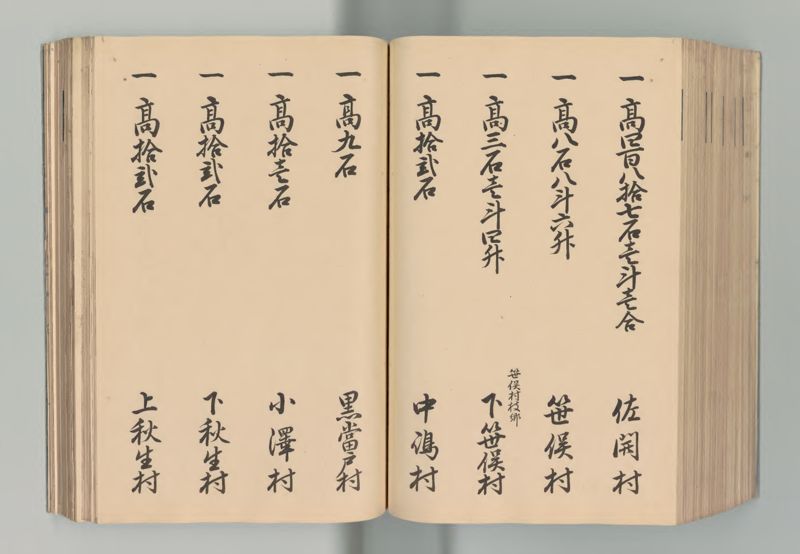 一 高四百八拾七石壱斗壱合 佐開村
一 高八石八斗六升 笹俣村
一 高三石壱斗四升 笹俣村枝郷 下笹俣村
一 高拾弐石 中嶋村
一 高九石 黒當戸村
一 高拾壱石 小澤村
一 高拾弐石 下秋生村
一 高拾弐石 上秋生村